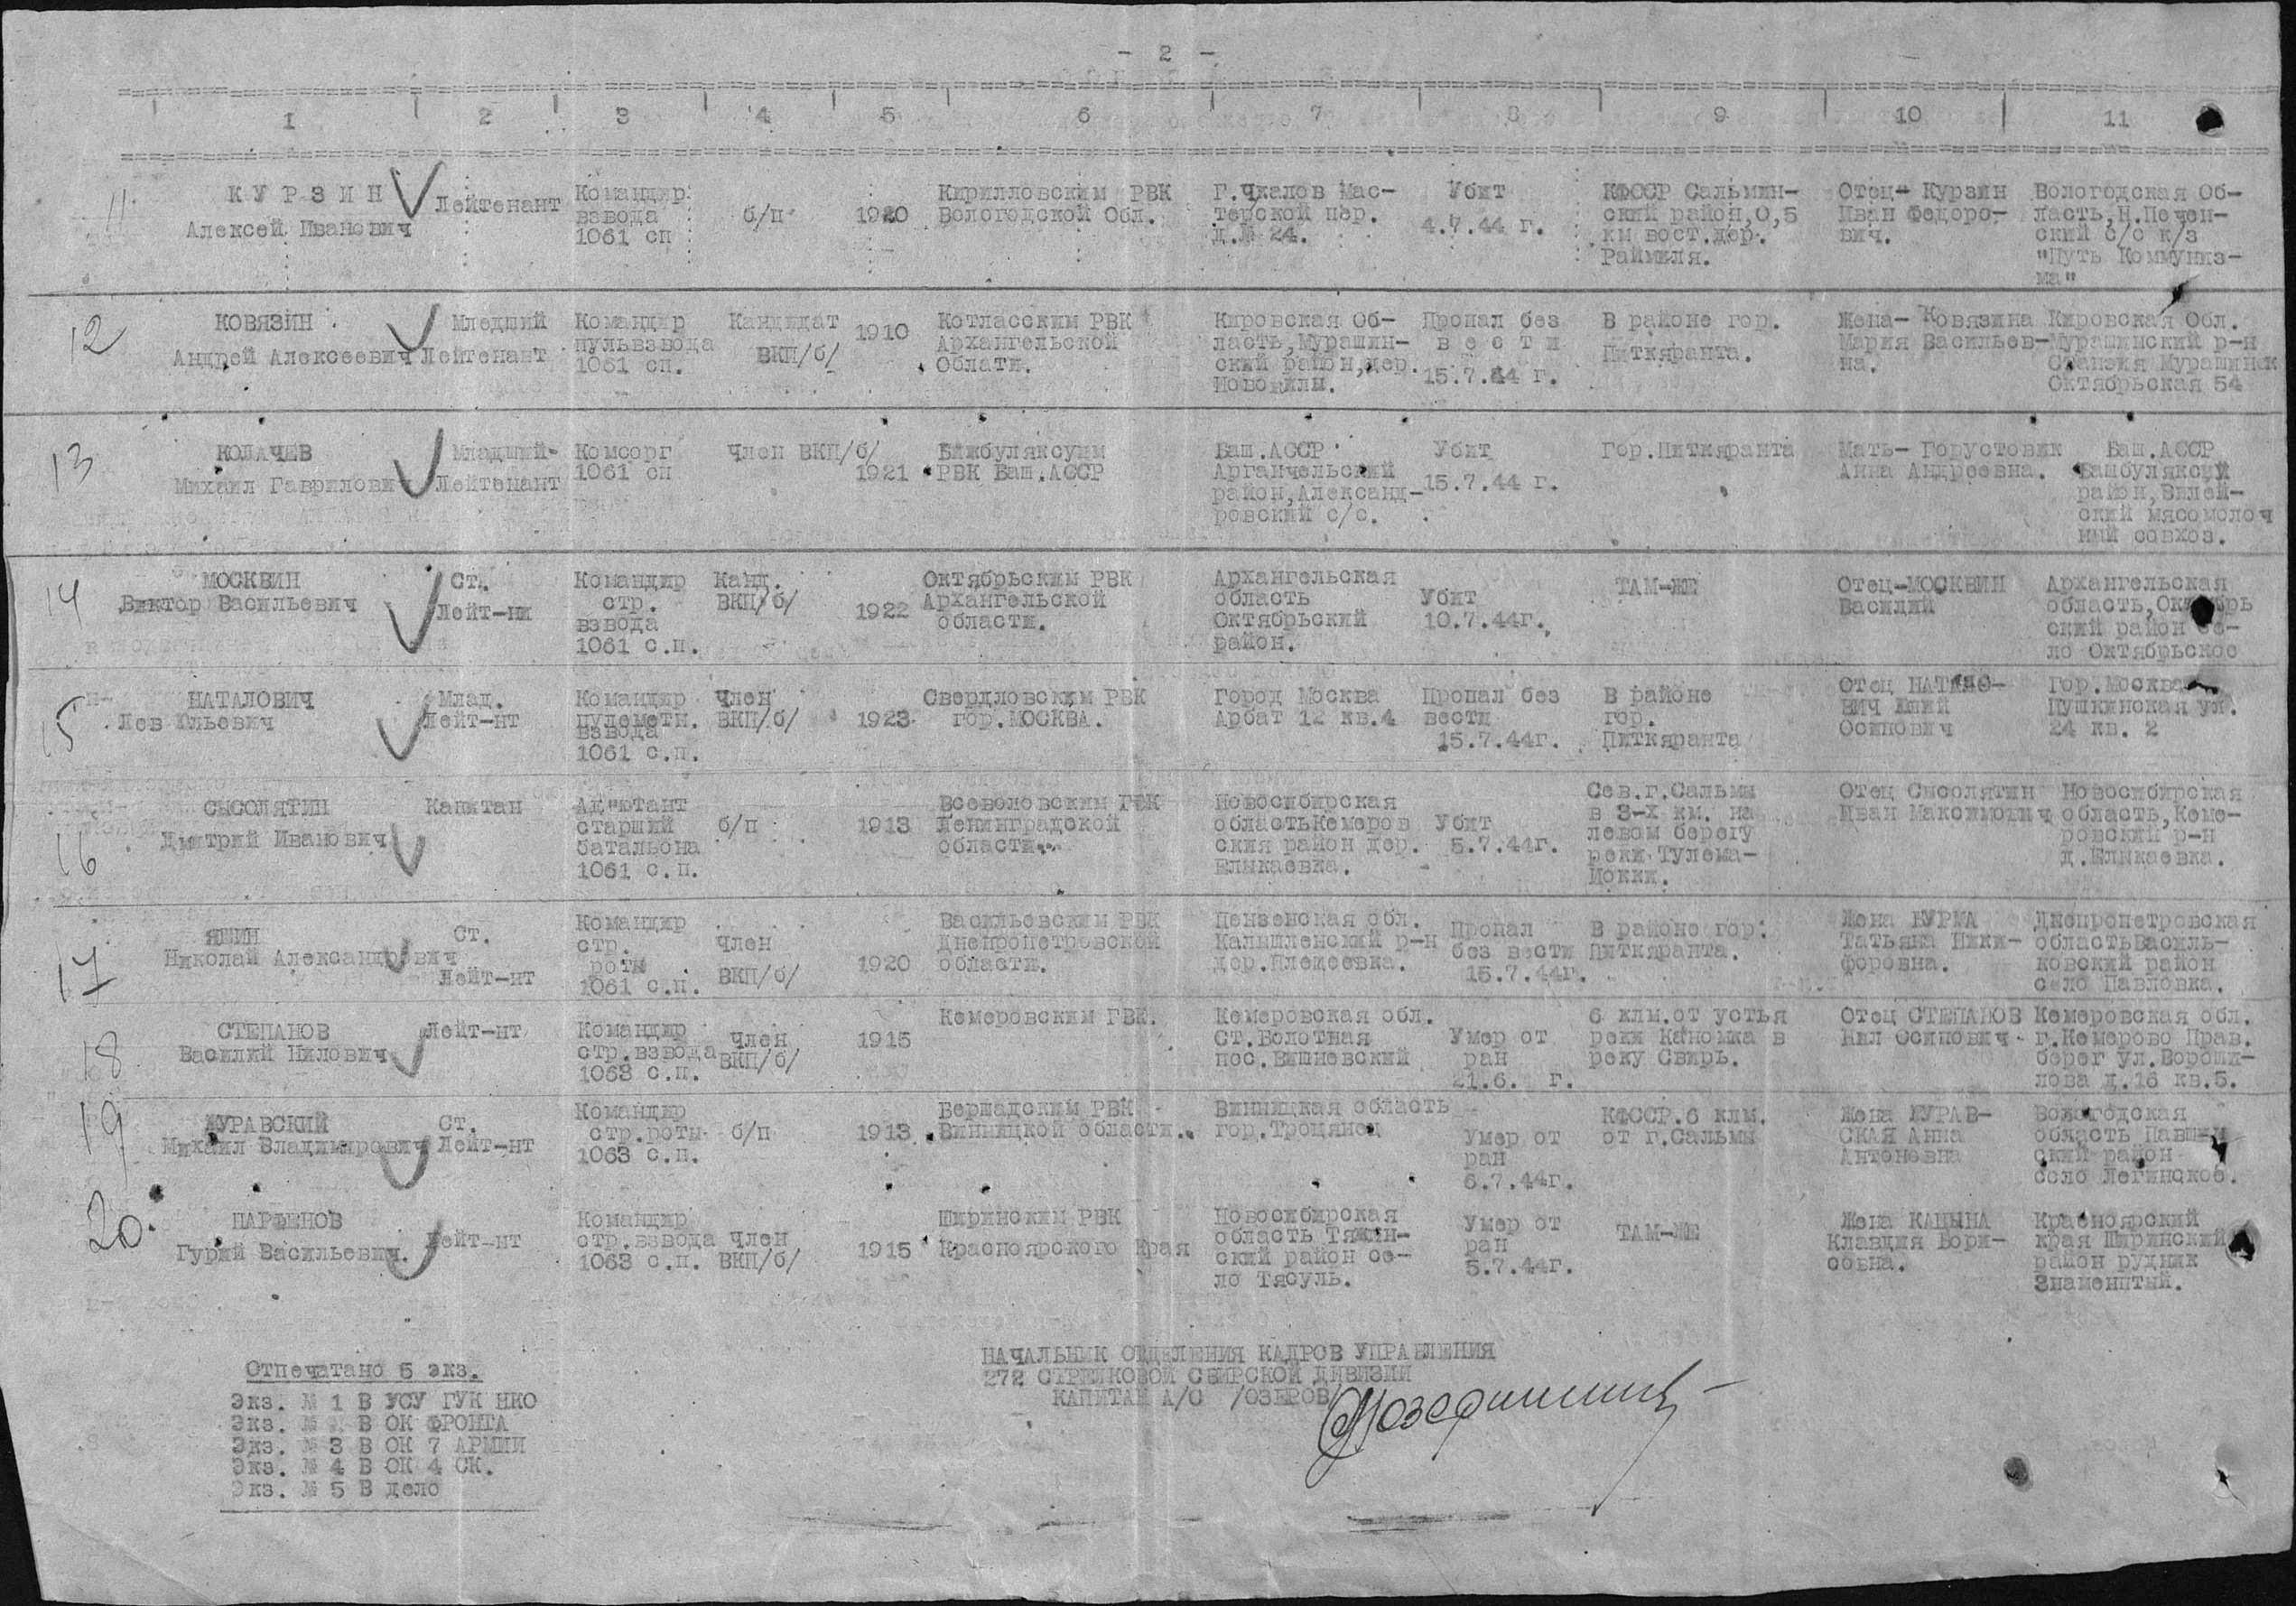 - 2 -
1 2 3 4 5 6 7 8 9 10 11
11
КУРЗИН
Алексей Иванович
Лейтенант
Командир
взвода
1061 сп
б/п
1920
Кирилловским РВК
Вологодской Обл.
Г.Чкалов Мас-
терской пер.
д.№ 24.
Убит
4.7.44 г.
КФССР Сальмин-
ский район,0,5
км вост.дер.
Раймиля.
Отец- Курзин
Иван Федоро-
вич.
Вологодская Об-
ласть,Н.Печен-
ский с/с к/з
"Путь Коммуниз-
ма"
12
КОВЯЗИН
Андрей Алексеевич
Младший
Лейтенант
Командир
пульвзвода
1061 сп.
Кандидат
ВКП/б/
1910
Котласским РВК
Архангельской
Облати.
Кировская Об-
ласть,Мурашин-
ский район,дер.
Пропал без
вести
15.7.44 г.
В районе гор.
Питкяранта.
Жена- Ковязина
Мария Васильев-
на.
Кировская Обл.
Мурашинский р-н
Станзия Мурашинск
Октябрьская 54
13
КОЛАЧЕВ
Михаил Гаврилович
Младший-
Лейтенант
Комсорг
1061 сп
Член ВКП/б/
1921
Бижбуляксуим
РВК Баш.АССР
Баш.АССР
Арганчельский
район,Александ-
ровский с/с.
Убит
15.7.44 г.
Гор.Питкяранта
Мать- Горустовик
Анна Андреевна.
Баш.АССР
Башбуляксий
район,Вилей-
ский мясомолоч
ный совхоз.
14
МОСКВИН
Виктор Васильевич
Ст.
Лейт-нн
Командир
стр.
взвода
1061 с.п.
Канд.
ВКП/б/
1922
Октябрьским РВК
Архангельской
области.
Архангельская
область
Октябрьский
район.
Убит
10.7.44г.
ТАМ-ЖЕ
Отец-МОСКВИН
Василий
Архангельская
область,Октябрь
ский район се-
ло Октябрьское
15
НАТАЛОВИЧ
Лев Юльевич
Млад.
Лейт-нт
Командир
пулеметн.
взвода
1061 с.п.
Член
ВКП/б/
1923
Свердловским РВК
гор.МОСКВА.
Город Москва
Арбат 12 кв.4
Пропал без
вести
15.7.44г.
В районе
гор.
Питкяранта
Отец НАТАЛО-
ВИЧ Юлий
Осипович
Гор.Москва
Пушкинская ул.
24 кв. 2
16
СЫСОЛЯТИН
Дмитрий Иванович
Капитан
Ад"ютант
старший
батальона
1061 с.п.
б/п
1913
Всеволовским РВК
Ленинградской
области.
Новосибирская
областьКемеров
ския район дер.
Елыкаевка.
Убит
5.7.44г.
Сев.г.Сальмы
в 3-х км. на
левом берегу
реки Тулема-
Йокки.
Отец Сысолятин
Иван Максимович
Новосибирская
область,Кеме-
ровский р-н
д.Елыкаевка.
17
ЯШИН
Николай Александрович
Ст.
Лейт-нт
Командир
стр.
роты
1061 с.п.
Член
ВКП/б/
1920
Васильевским РВК
Днепропетровской
области.
Пензенская обл.
Калышленский р-н
дер.Плещеевка.
Пропал
без вести
15.7.44г.
В районе гор.
Питкяранта.
Жена БУРМА
Татьяна Ники-
форовна.
Днепропетровская
областьВасиль-
ковский район
село Павловка.
18
СТЕПАНОВ
Василий Нилович
Лейт-нт
Командир
стр.взвода
1063 с.п.
Член
ВКП/б/
1915
Кемеровским ГВК.
Кемеровская обл.
Ст.Болотная
пос.Вишневский
Умер от
ран
21.6. г.
6 клм.от устья
реки Каномка в
реку Свирь.
Отец СТЕПАНОВ
Нил Осипович
Кемеровская обл.
г.Кемерово Прав.
берег ул.Вороши-
лова д.16 кв.5.
19
ЖУРАВСКИЙ
Михаил Владимирович
Ст.
Лейт-нт
Командир
стр.роты
1063 с.п.
б/п
1913
Бершадским РВК
Винницкой области.
Винницкая область
гор.Троцянец
Умер от
ран
6.7.44г.
КФССР.6 клм.
от г.Сальмы
Жена ЖУРАВ-
СКАЯ Анна
Антоновна
Вологодская
область Павшин
ский район
село Легинское.
20.
ПАРФЕНОВ
Гурий Васильевич.
Лейт-нт
Командир
стр.взвода
1063 с.п.
член
ВКП/б/
1915
Ширинским РВК
Красноярского Края
Новосибирская
область Тяжин-
ский район се-
ло Тясуль.
Умер от
ран
5.7.44г.
ТАМ-ЖЕ
Жена КАЦЫНА
Клавдия Бори-
совна.
Красноярский
края Ширинский
район рудник
Знаменитый.
НАЧАЛЬНИК ОТДЕЛЕНИЯ КАДРОВ УПРАВЛЕНИЯ
272 СТРЕЛКОВОЙ СВИРСКОЙ ДИВИЗИИ
КАПИТАН А/С /ОЗЕРОВ/
Отпечатано 5 экз.
Экз. № 1 В УСУ ГУК НКО
Экз. № В ОК ФРОНТА
Экз. № 3 В ОК 7 АРМИИ
Экз. № 4 В ОК 4 СК.
Экз. № 5 В дело